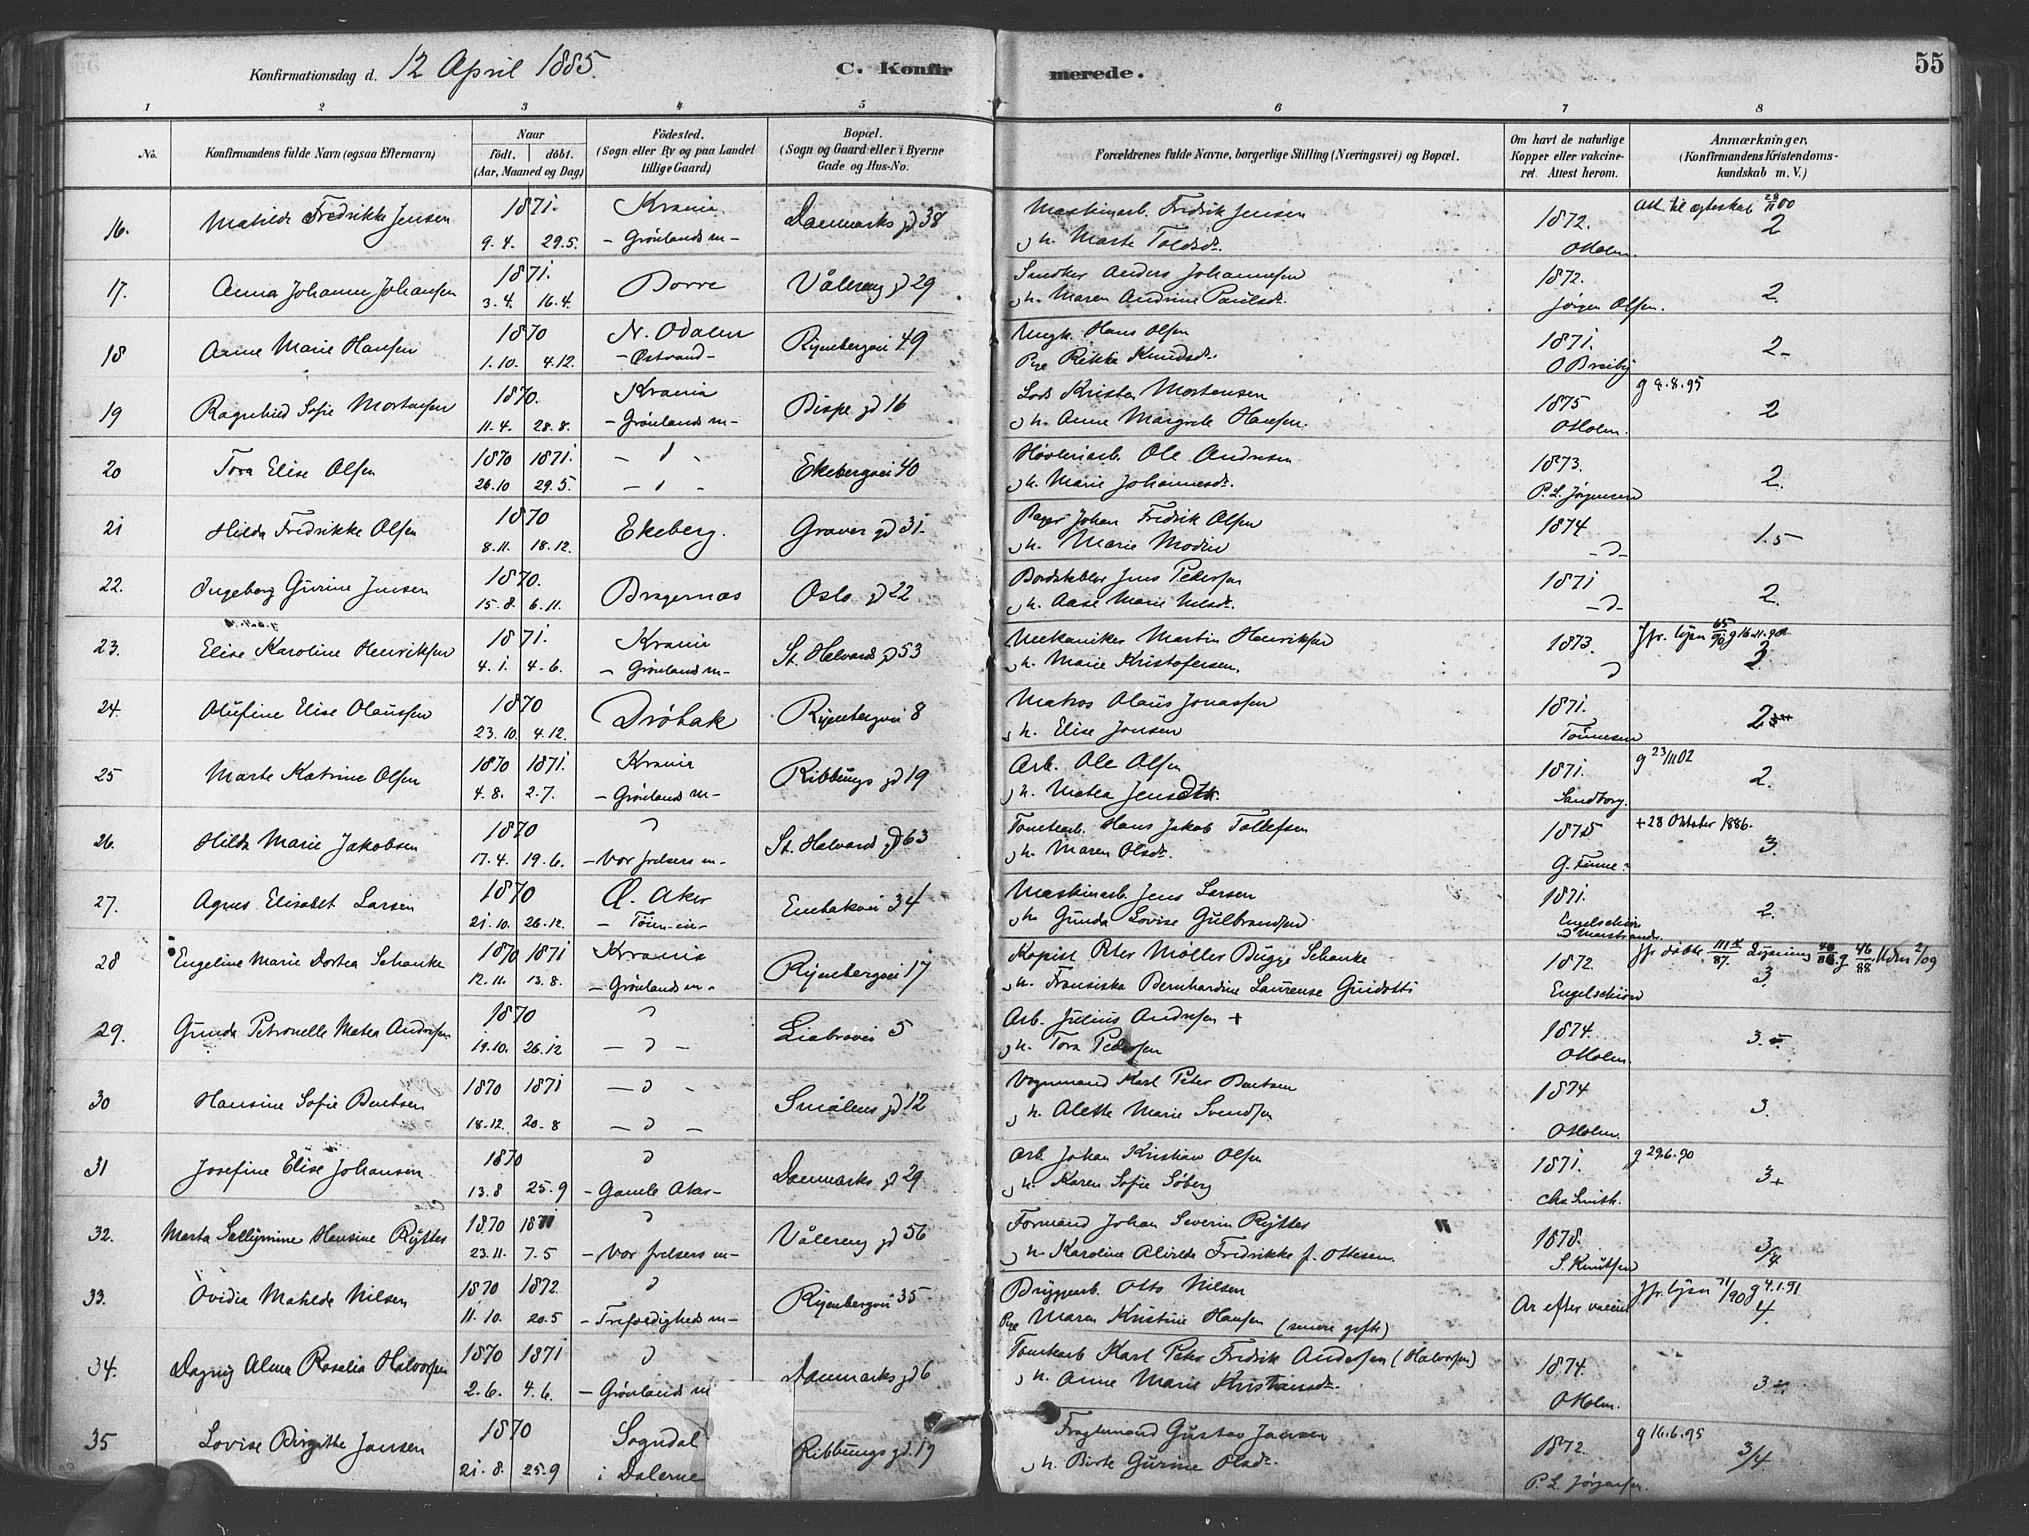 Konfirmationsdag d. 12 April 1885.
C. Konfirmerede.
55
1 2 3 4 5 6 7 8
No.
Konfirmandens fulde Navn (ogsaa Efternavn)
Naar
födt. döbt.
(Aar, Maaned og Dag)
Födested.
(Sogn eller By og paa Landet
tillige Gaard)
Bopæl.
(Sogn og Gaard eller i Byerne
Gade og Hus-No.
Forældrenes fulde Navne, borgerlige Stilling (Næringsvei) og Bopæl.
Om havt de naturlige
Kopper eller vakcine-
ret. Attest herom.
Anmærkninger.
(Konfirmandens Kristendoms-
kundskab m. V.)
16. Matilde Fredrikke Jensen 1871. Krania Danmarks gd 38 Maskinarb. Fredrik Jensen 1872. Att. til ægteskab 2
9.4. 29.5. - Grönlands m- h. Marte Toldsdr. O Holm.
17. Anna Johanne Johansen 1871. Borre Vålereng gd 29 Snedker Anders Johannesen 1872. 2.
3.4. 16.4. h. Maren Andrine Paulsdr. Jörgen Olsen.
18 Anne Marie Hansen 1870 N. Odalen Ryenbergvei 49 Ungk. Hans Olsen 1871. 2-
1.10. 4.12. Pge Rikka Knudsdr. O Breiby
19 Ragnhild Sofie Mortensen 1870. Krania Bispe gd 16 Lods Kristen Mortensen 1875 g 8.8.95 2
11.4. 28.8. - Grönlands m- h. Anne Margrete Hansen. O Holm.
20 Tora Elise Olsen 1870 1871. Ekebergvei 40 Høvleriarb. Ole Andresen 1873. 2.
26.10 29.5. h. Marie Johannesdr. P. L. Jørgensen
21 Hilda Fredrikke Olsen 1870 Ekeberg. Graver gd 31. Bager Johan Fredrik Olsen 1874 1.5
8.11. 18.12. h. Marie Modin
22. Ingeborg Gurine Jensen 1870. Bragernæs Oslo gd 22 Bordstabler Jens Pedersen 1871 2.
15.8. 6.11. h. Aase Marie Nilsdr.
23. Elise Karoline Henriksen 1871. Krania St. Halvards gd 53 Mekaniker Martin Henriksen 1873. Jfr. lysn 65/90 g 16.11.90
4.1. 4.6. - Grönlands m- h. Marie Kristofersen.
24. Olufine Elise Olaussen 1870 Dröbak Ryenbergvei 8 Matros Olaus Jonassen 1871. 2
23.10. 4.12. h. Elise Jonsen Tönnesen
25 Marte Katrine Olsen 1870 1871. Krania Ribbungs gd 19 Arb. Ole Olsen 1871. g 23/11 02 2.
4.8. 2.7. - Grönlands m- h. Matea Jensdtr. Sandborg.
26. Hilda Marie Jakobsen 1870 St. Halvards gd 63 Tomtearb. Hans Jakob Tollefsen 1875 + 28 Oktober 1886. 3.
17.4. 19.6. - Vor frelsers m- h. Maren Olsdr. G. Finne
27. Agnes Elisabet Larsen 1870 Ø. Aker Enebakvei 34 Maskinarb. Jens Larsen 1871. 2.
21.10. 26.12. - Töien-m- h. Gunda Lovise Gulbrandsen Engelschiön
28 Engeline Marie Dortea Schanke 1870 1871 Krania Ryenbergvei 17 Kopist Peter Møller Bugge Schanke 1872. Jfr døbte Lysning 3.
12.11. 13.8. - Grönlands m- h. Fransiska Bernhardine Laurense Guidotti Engelschiön
29. Gunda Petronelle Matea Andresen 1870 Liabrovei 5 Arb. Julius Andresen + 1874. 3.
19.10. 26.12 h. Tora Pedersen O Holm.
30 Hansine Sofie Bentsen 1870 1871 Smålens gd 12 Vognmand Karl Peter Bentsen 1874 3.
18.12. 20-8 h. Alette Marie Svendsen O Holm.
31 Josefine Elise Johansen 1870 Danmarks gd 29 Arb. Johan Kristian Olsen 1871. g 29.6.90 3+
13.8 25.9 - Gamle Aker- h. Karen Sofie Söberg Chr Smith.
32. Marta Hansine Rytter 1870 1871 Vålereng gd 56 Formand Johan Severin Rytter 1878. 3/4
23.11. 7.5 - Vor frelsers m- h. Karoline Alvilde Fredrikke f. Ottesen. S. Knutsen
33. Ovidia Matilde Nilsen 1870 1872. Ryenbergvei 35 Bryggearb. Otto Nilsen Ar efter vaccine Jfr. lysn 71/90 g 4.1.91 4.
11.10. 20.5 - Trefoldigheds m- Pge Maren Kristine Hansen (senere gifte)
34. Dagny Alma Rosalia Halvorsen 1870 1871 Danmarks gd 6 Tomtearb Karl Peter Fredrik Andersen (Halvorsen) 1874. 3
2.6. 4.6. - Grönlands m h. Anne Marie Kristiansdr. O Holm.
35 Lovise Birgitte Jansen 1870 Sogndal Ribbungs gd. 19 Fragtemand Gustav Jansen 1872. g 16.6.95 3/4
21.8. 25.9 i Dalerne h. Berte Gurine Olsdr. P. L. Jörgensen.